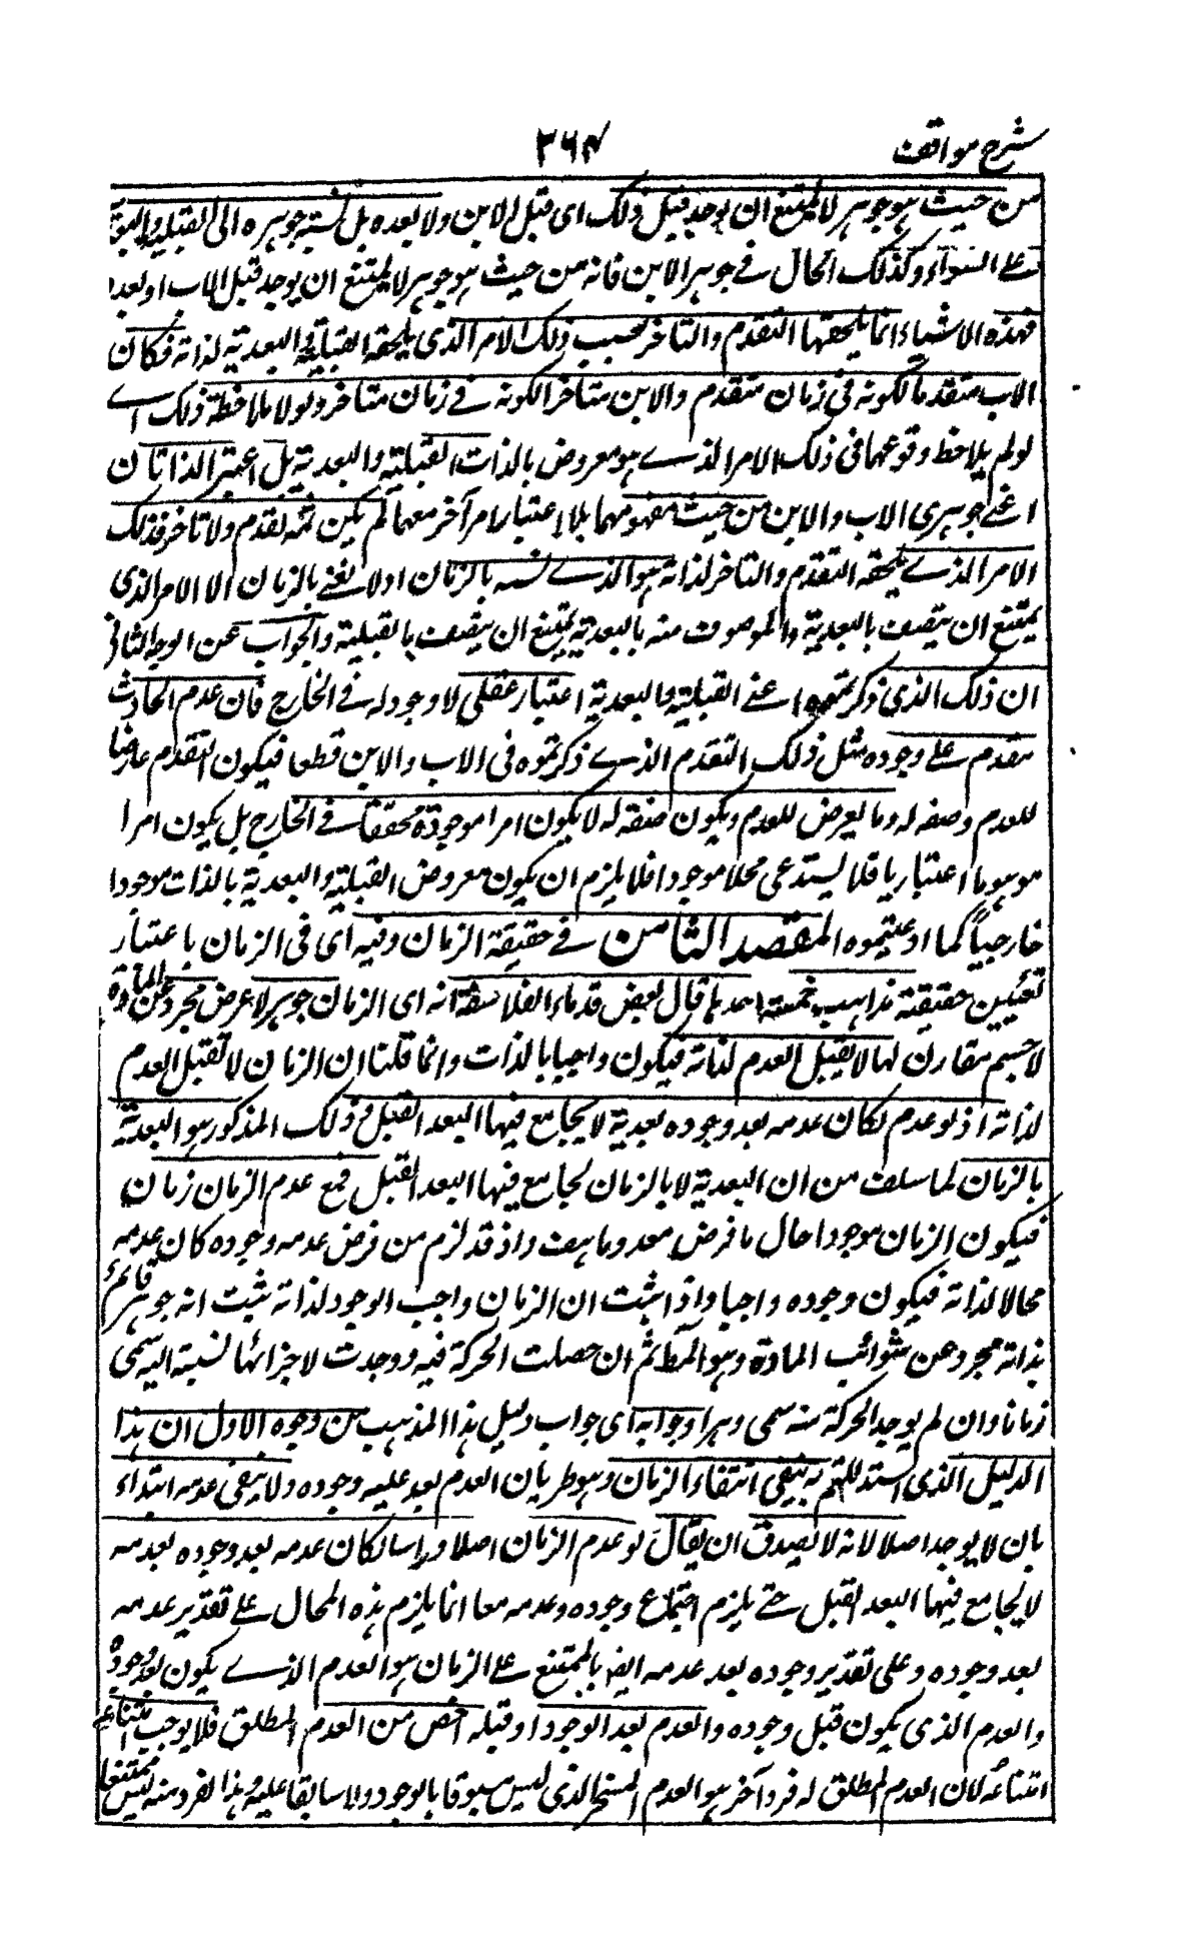 شرح مواقف
٣٦٤
من حيث هو جوهر لا يمتنع ان يوجد قبل ذلك اى قبل الابن ولا بعده بل نسبة جوهره الى القبلية والبعدية
على السواء وكذلك الحال فى جوهر الابن فانه من حيث هو جوهر لا يمتنع ان يوجد قبل الاب او بعده
فهذه الاشياء انما يلحقها التقدم والتاخر بحسب ذلك الامر الذى يلحقه القبلية والبعدية لذاته فكان
الاب متقدما لكونه فى زمان متقدم والابن متاخرا لكونه فى زمان متاخر ولولا ملاحظة ذلك اے
لو لم يلاحظ وقوعهما فى ذلك الامر الذے هو معروض بالذات للقبلية والبعدية بل اعتبر الذاتان
اعنے جوهرى الاب والابن من حيث مفهومهما بلا اعتبار امر آخر معهما لم يكن ثمه تقدم ولا تاخر فذلك
الامر الذے يلحقه التقدم والتاخر لذاته هو الذے نسميه بالزمان اذ لا نعنے بالزمان الا الامر الذى
يمتنع ان يتصف بالبعدية والموصوف منه بالبعدية يمتنع ان يتصف بالقبلية والجواب عن الوجه الثانى
ان ذلك الذى ذكرتموه اعنے القبلية والبعدية اعتبار عقلى لا وجود له فے الخارج فان عدم الحادث
متقدم علے وجوده مثل ذلك التقدم الذے ذكرتموه فى الاب والابن قطعا فيكون التقدم عارضا
للعدم وصفه له وما يعرض للعدم ويكون صفة له لا يكون امرا موجودة محققا فے الخارج بل يكون امرا
موهوما اعتباريا فلا يستدعى محلا موجودا فلا يلزم ان يكون معروض القبلية والبعدية بالذات موجودا
خارجياً كما ادعيتموه المقصد الثامن فے حقيقة الزمان وفيه اى فى الزمان باعتبار
تعيين حقيقته مذاهب خمسة احدها قال بعض قدماء الفلاسفة انه اى الزمان جوهر لا عرض مجرد عن المادة
لا جسم مقارن لها لا يقبل العدم لذاته فيكون واجبا بالذات وانما قلنا ان الزمان لا تقبل العدم
لذاته اذ لو عدم لكان عدمه بعد وجوده بعدية لا يجامع فيها البعد القبل وذلك المذكور هو البعدية
بالزمان لما سلف من ان البعدية لا بالزمان يجامع فيها البعد القبل فمع عدم الزمان زمان
فيكون الزمان موجودا حال ما فرض معدوما هف واذ قد لزم من فرض عدمه وجوده كان عدمه
محالا لذاته فيكون وجوده واجبا واذا ثبت ان الزمان واجب الوجود لذاته ثبت انه جوهر قائم
بذاته مجرد عن شوائب المادة وهو المط ثم ان حصلت الحركة فيه ووجدت لاجزائها نسبة اليه سمى
زمانا وان لم يوجد الحركة منه سمى دهرا وجوابه اى جواب دليل هذا المذهب من وجوه الاول ان هذا
الدليل الذى استدللتم به ينفى انتفاء الزمان وهو طريان العدم بعد عليه وجوده ولا ينفى عدمه ابتداء
بان لا يوجد اصلا لانه لا يصدق ان يقال لو عدم الزمان اصلا وراسا لكان عدمه بعد وجوده بعدمه
لا يجامع فيها البعد القبل حتے يلزم اجتماع وجوده وعدمه معا انما يلزم هذه المحال علے تقدير عدمه
بعد وجوده وعلى تقدير وجوده بعد عدمه ايضا بالممتنع علے الزمان هو العدم الذے يكون بعد وجوده
والعدم الذى يكون قبل وجوده والعدم بعد الوجود او قبله اخص من العدم المطلق فلا يوجب امتناعه
امتناعه لان العدم المطلق له فرد آخر هو العدم المستمر الذى ليس مسبوقا بالوجود ولا سابقا عليه وهذا لفرد منه ليس ممتنعا